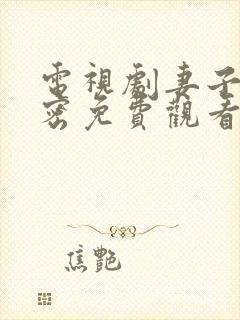 電視劇妻子
密免費觀看
焦艷